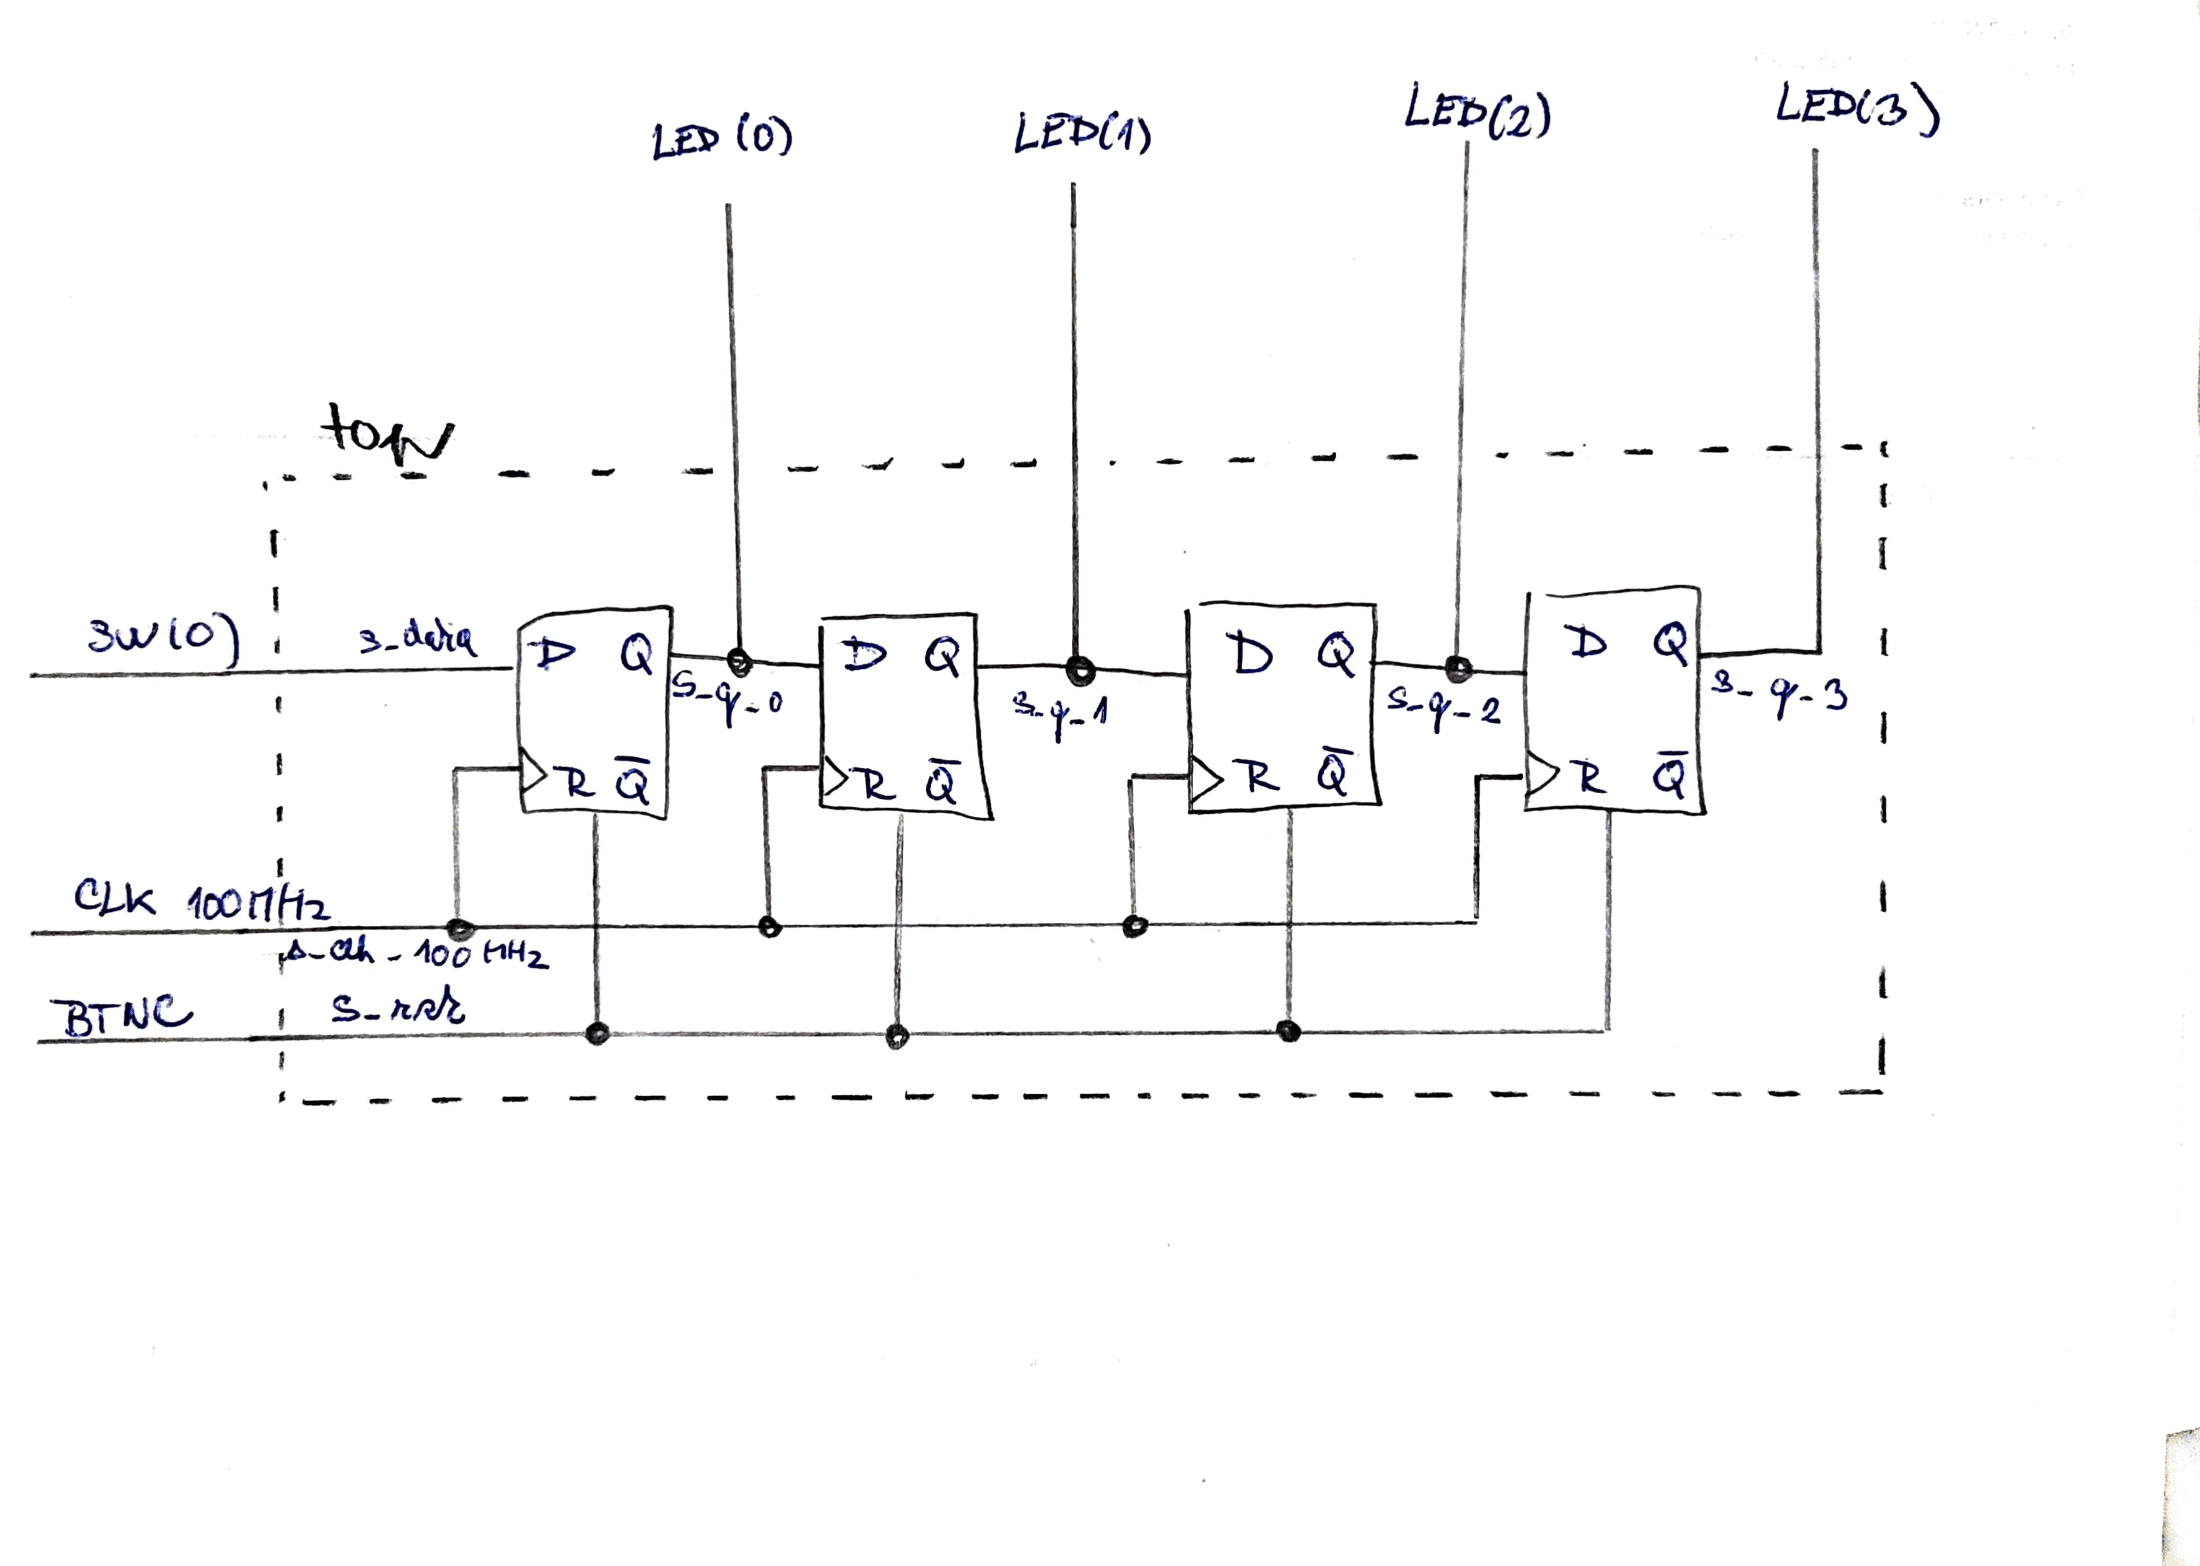 LED (0) LED(1) LED(2) LED(3)
top
SW(0) s_data D Q s_q_0 D Q s_q_1 D Q s_q_2 D Q s_q_3
R Q̅ R Q̅ R Q̅ R Q̅
CLK 100MHz
s_clk_100MHz
BTNC s_rst